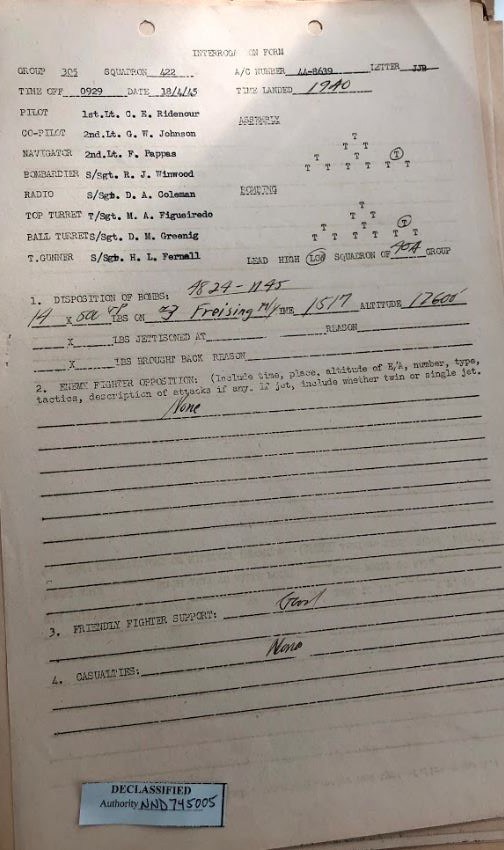 INTERROGATION FORM
GROUP 305 SQUADRON 422 A/C NUMBER 44-8639 LETTER JJB
TIME OFF 0929 DATE 18/4/45 TIME LANDED 1940
PILOT 1st.Lt. C. E. Ridenour
ASSEMBLY
CO-PILOT 2nd.Lt. G. W. Johnson
T
T T
NAVIGATOR 2nd.Lt. F. Pappas
T T T
T T T T T T
BOMBARDIER S/Sgt. R. J. Winwood
RADIO S/Sgt. D. A. Coleman
BOMBING
TOP TURRET T/Sgt. M. A. Figueiredo
T
T T
T T T
BALL TURRET S/Sgt. D. M. Greenig
T T T T T T
T.GUNNER S/Sgt. H. L. Fernall
LEAD HIGH LOW SQUADRON OF 40A GROUP
4824-1145
1. DISPOSITION OF BOMBS:
14 X 500 LBS ON Freising M/Y TIME 1517 ALTITUDE 17600'
X LBS JETTISONED AT REASON
X LBS BROUGHT BACK REASON
2. ENEMY FIGHTER OPPOSITION: (Include time, place, altitude of E/A, number, type,
tactics, description of attacks if any. If jet, include whether twin or single jet.
None
3. FRIENDLY FIGHTER SUPPORT: Good
4. CASUALTIES: None
DECLASSIFIED
Authority NND745005